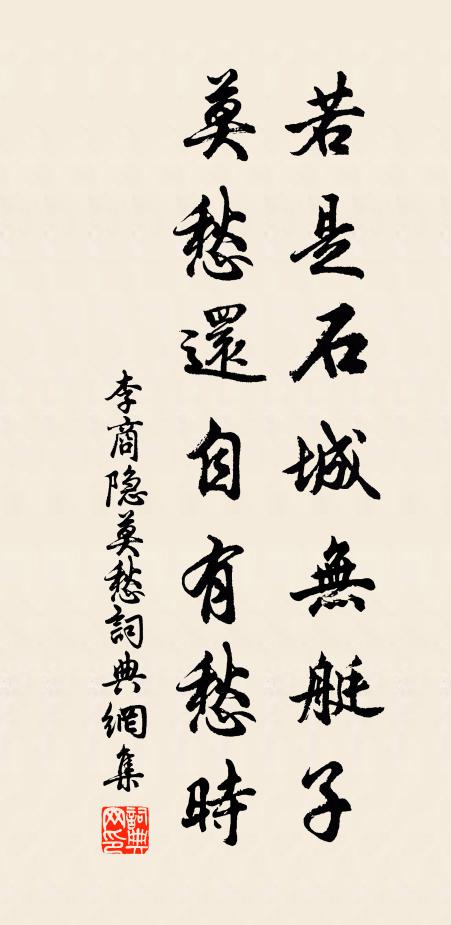 若是石城無艇子
莫愁還自有愁時
李商隐莫愁詞典網集
詞典
网印